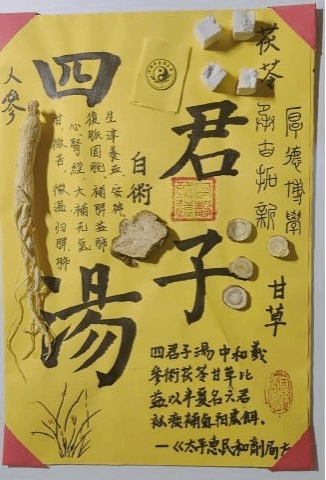 四君子湯
人參
甘、微苦、微温归脾、肺
心、腎經。大補元氣
復脈固脫,補脾益肺
生津養血,安神
白術
茯苓
承古拓新
厚德博學
甘草
四君子湯中和義
參術茯苓甘草比
益以半夏名六君
祛痰補氣陽虛餌
—《太平惠民和劑局方